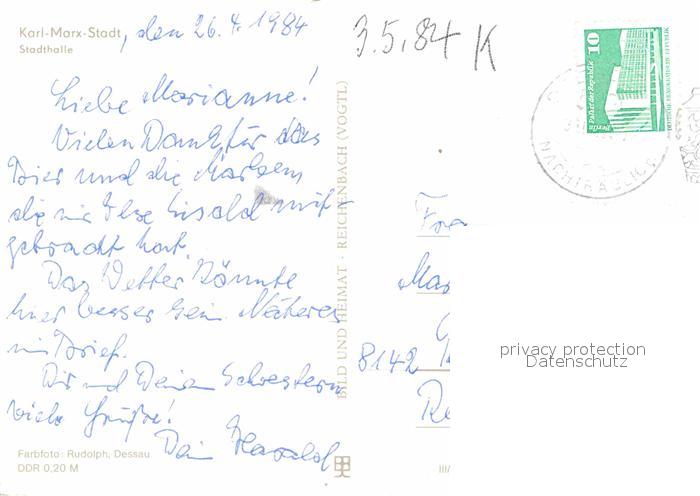 Karl-Marx-Stadt, den 26.4.1984
Stadthalle
3.5.84 K
Liebe Marianne!
Vielen Dank für das
Bier und die Marken,
die mir Ilse
gebracht hat.
Das Wetter könnte
hier besser sein. Näheres
im Brief.
Dir und Deinen Schwestern
viele Grüße!
Dein Harald
Farbfoto: Rudolph, Dessau
DDR 0,20 M
BILD UND HEIMAT · REICHENBACH (VOGTL)
10
Palast der Republik
Berlin
DEUTSCHE DEMOKRATISCHE REPUBLIK
8142
III/
privacy protection
Datenschutz